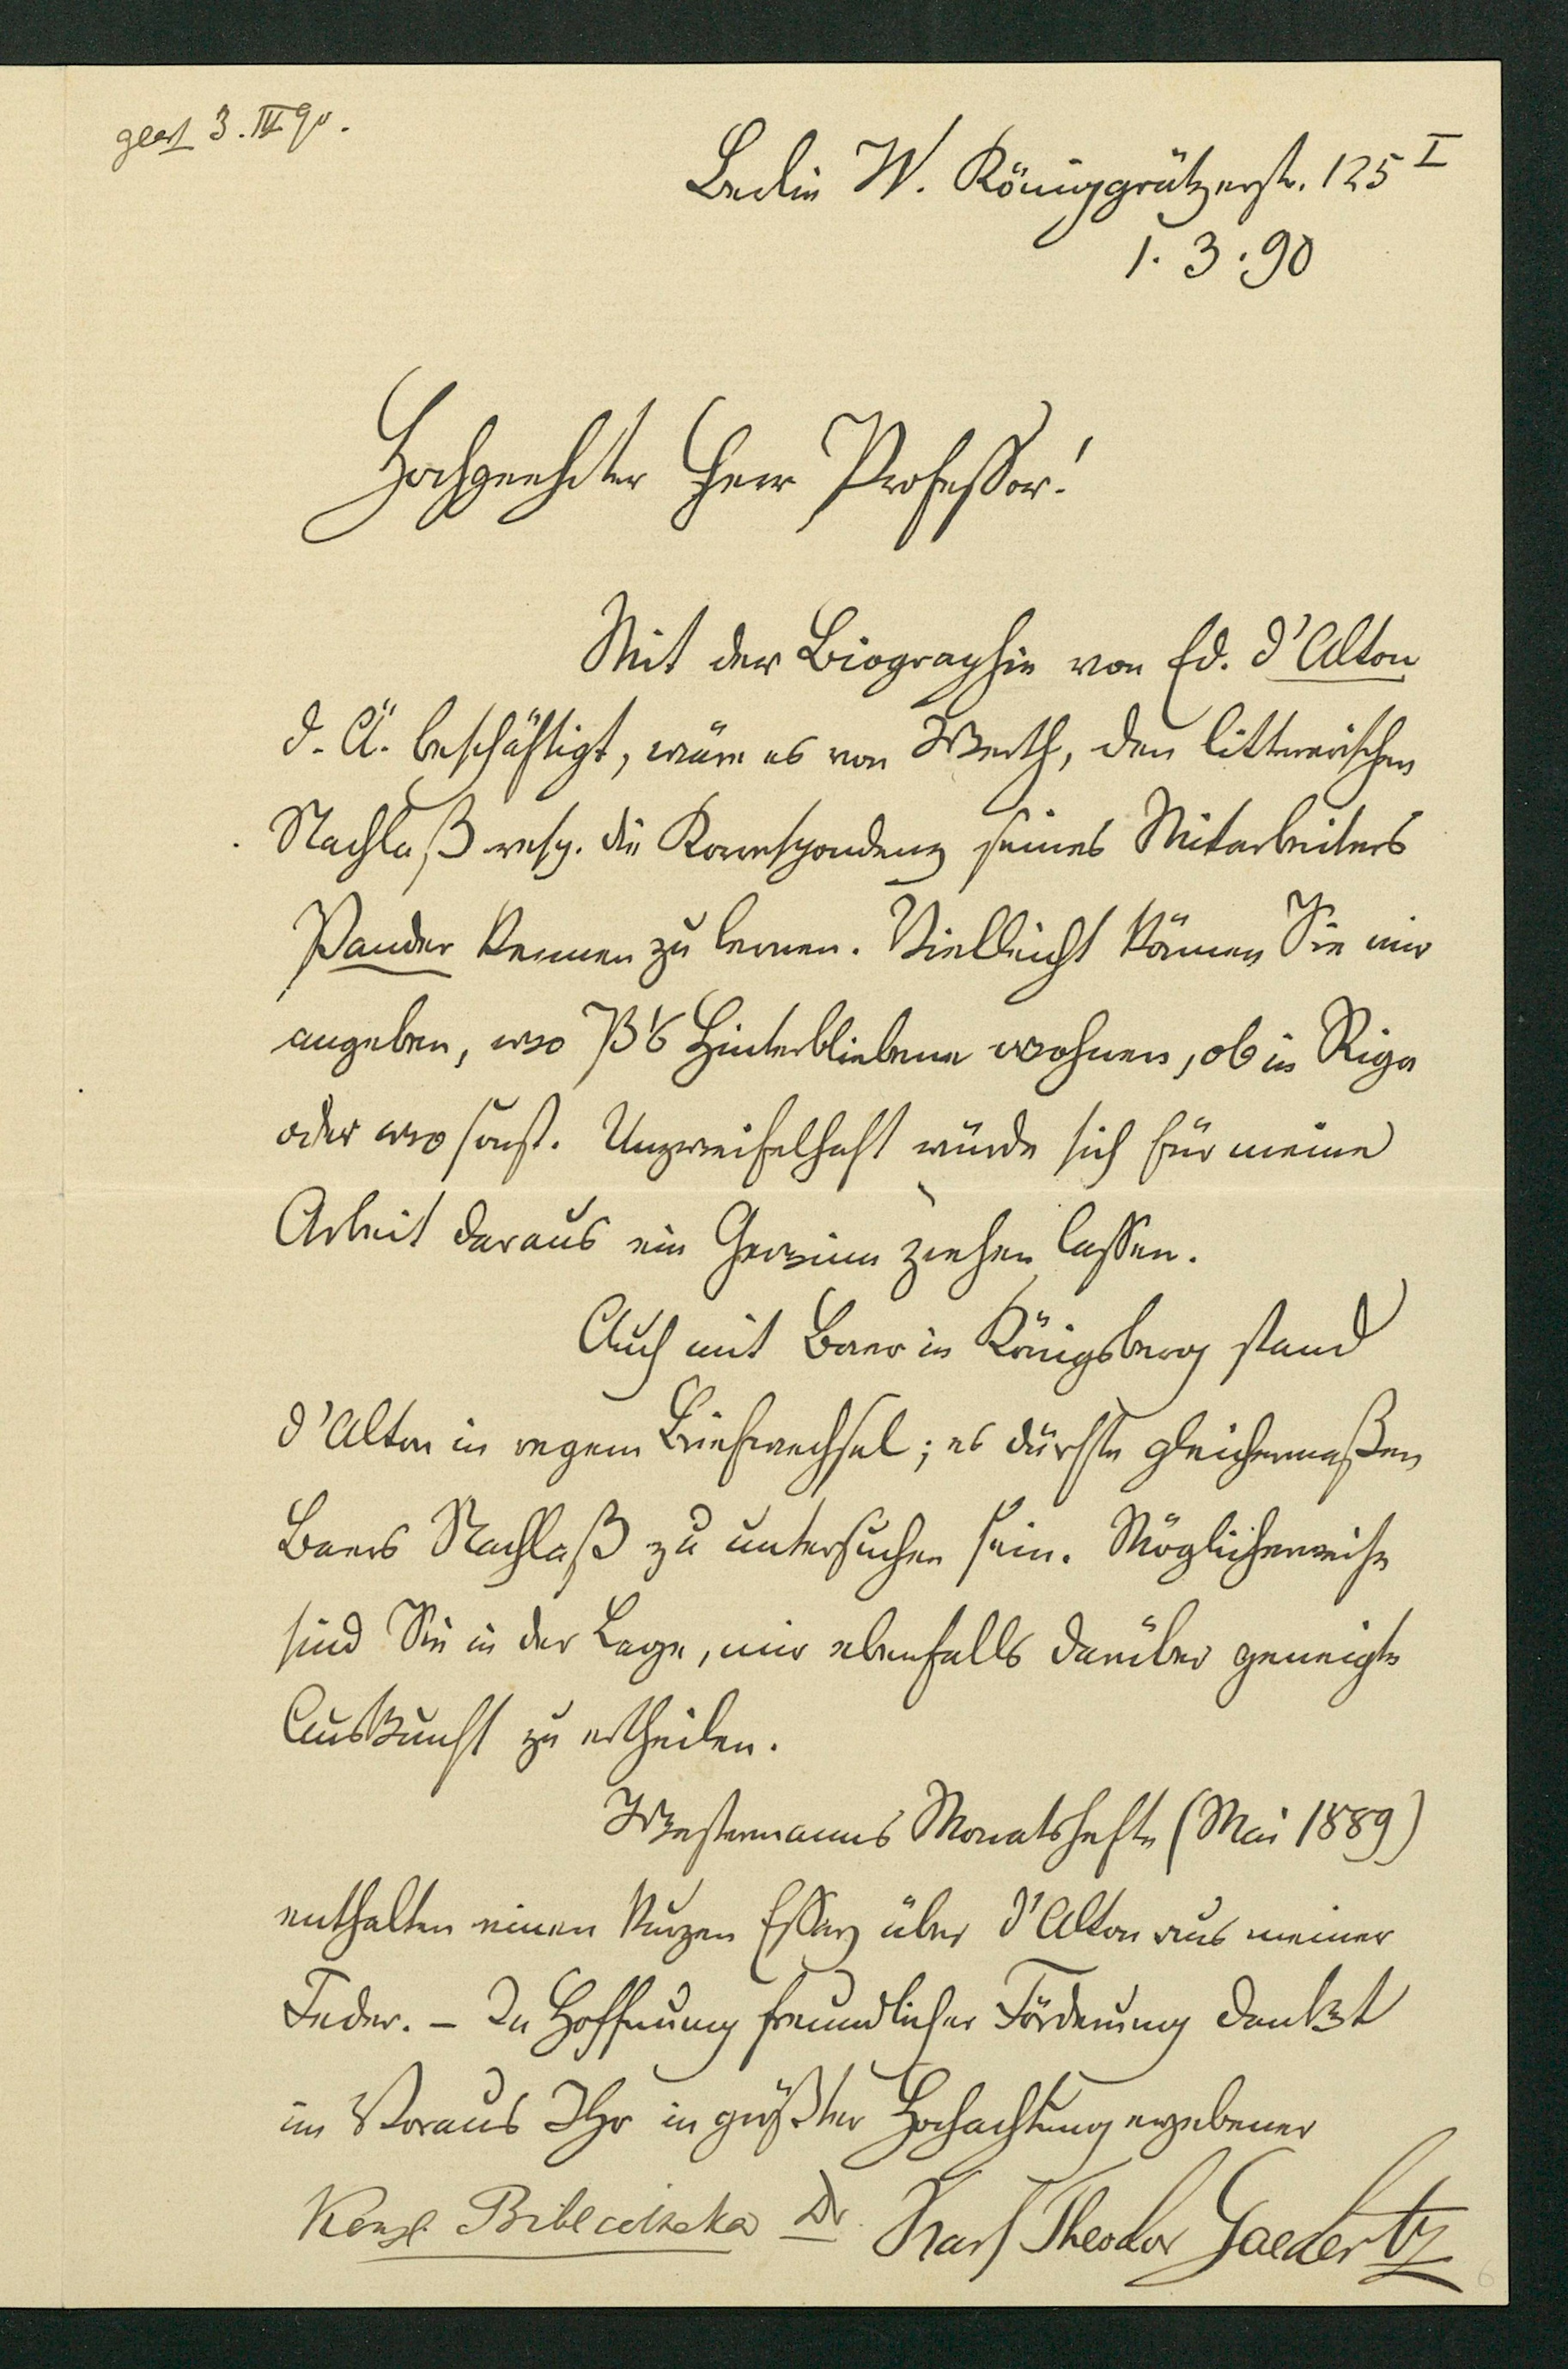 3. III 90.
Berlin W. Königgrätzerstr. 125 I
1. 3. 90
Hochgeehrter Herr Professor!
Mit der Biographie von Ed. d'Alton
d. Ä. beschäftigt, wäre es von Werth, den litterarischen
Nachlaß resp. die Korrespondenz seines Mitarbeiters
Pander kennen zu lernen. Vielleicht können Sie mir
angeben, wo P's Hinterbliebene wohnen, ob in Riga
oder wo sonst. Unzweifelhaft würde sich für meine
Arbeit daraus ein Gewinn ziehen lassen.
Auch mit Baer in Königsberg stand
d'Alton in regem Briefwechsel; es dürfte gleichermaßen
Baers Nachlaß zu untersuchen sein. Möglicherweise
sind Sie in der Lage, mir ebenfalls darüber geneigte
Auskunft zu ertheilen.
Westermanns Monatshefte (Mai 1889)
enthalten einen kurzen Essay über d'Alton aus meiner
Feder. – In Hoffnung freundlicher Förderung dankt
im Voraus Ihr in größter Hochachtung ergebener
Dr. Karl Theodor Gaedertz